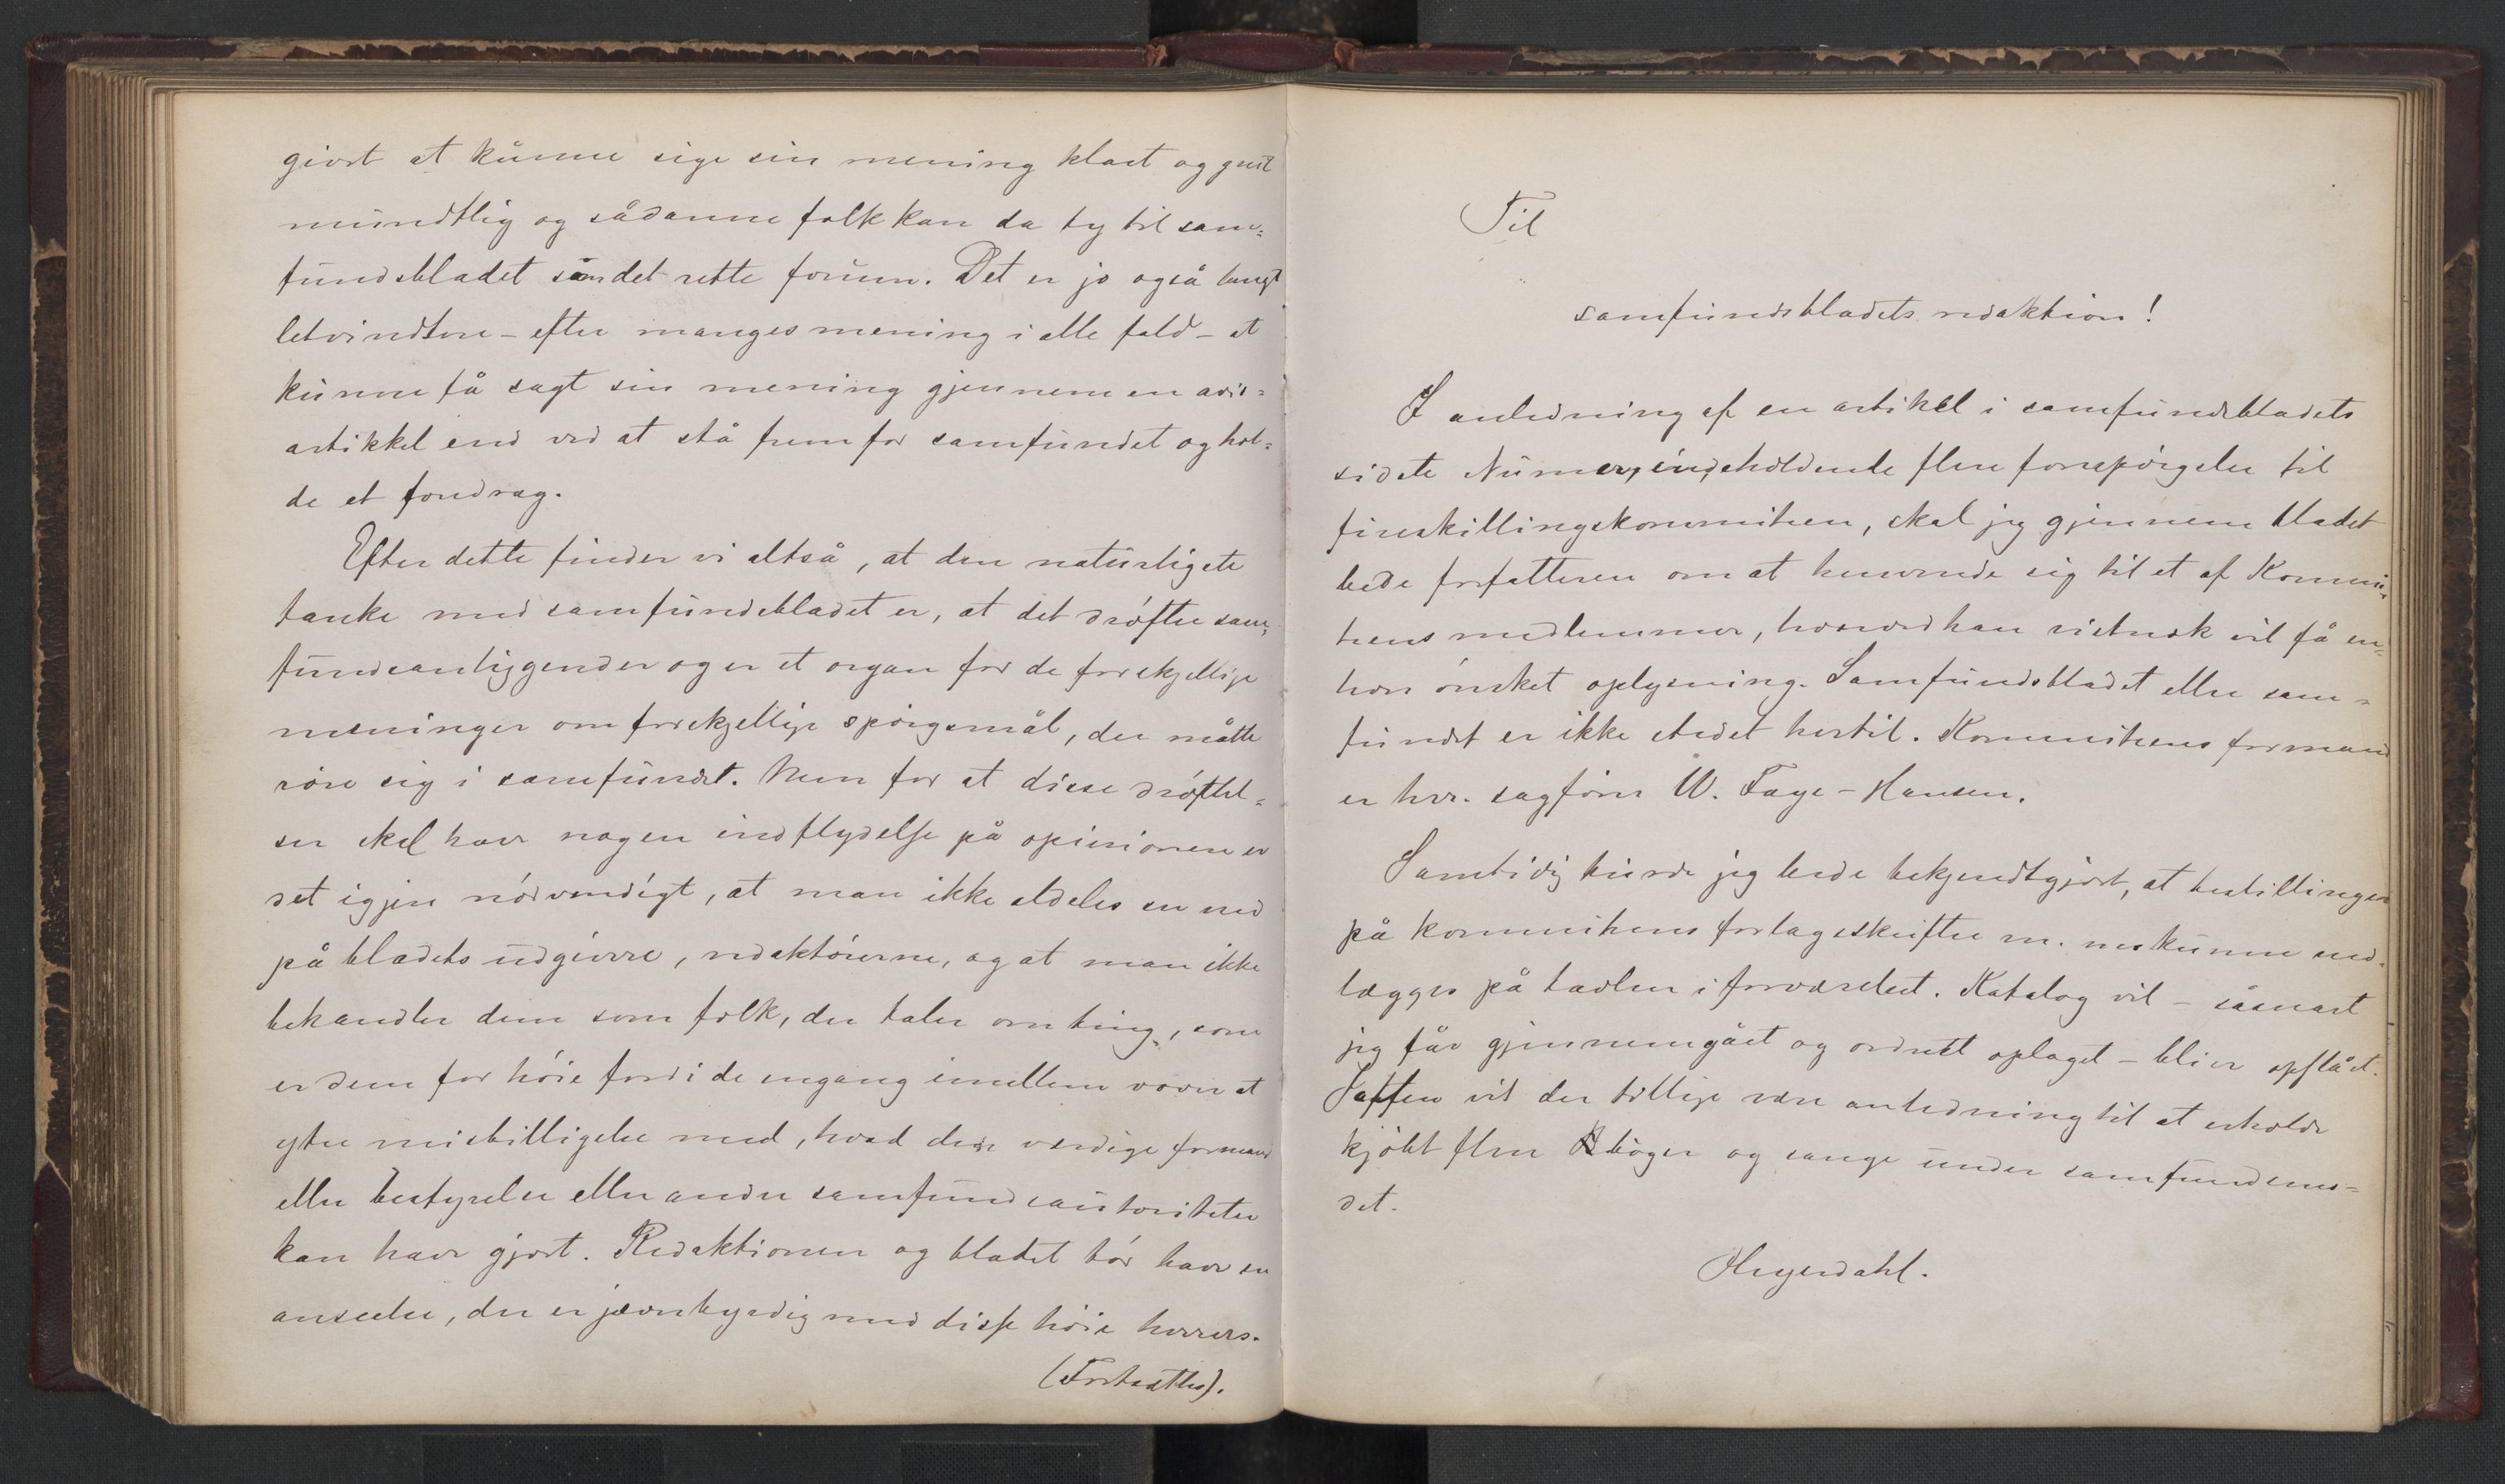 givst at kunne sige sin mening klart og greit
mundtlig og sådanne folk kan da ty til sam=
fundsbladet som det rette forum. Det er jo også langt
letvindtere - efter manges mening i alle fald - at
kunne få sagt sin mening gjennem en avis=
artikkel end ved at stå frem for samfundet og hol=
de et foredrag.
Efter dette finder vi altså, at den naturligste
tanke med samfundsbladet er, at det drøfter sam=
fundsanliggender og er et organ for de forskjellige
meninger om forskjellige spørgsmål, der måtte
røre sig i samfundet. Men for at disse drøftel=
ser skal have nogen indflydelse på opinionen er
det igjen nødvendigt, at man ikke aldeles ser ned
på bladets udgivere, redaktørerne, og at man ikke
behandler dem som folk, der taler om ting, som
er dem for høie fordi de engang imellem vover at
ytre misbilligelse med, hvad den værdige formand
eller bestyrelse eller andre samfundsautoriteter
kan have gjort. Redaktionen og bladet bør have en
anseelse, der er jævnbyrdig med disse høie herrers.
(Fortsættes).
Til
samfundsbladets redaktion!
I anledning af en artikel i samfundsbladets
sidste Numer, indeholdende flere forespørgsler til
fireskillingskommiteen, skal jeg gjennem bladet
bede forfatteren om at henvende sig til et af Kommi=
teens medlemmer, hvorved han vistnok vil få en=
hver ønsket oplysning. Samfundsbladet eller sam=
fundet er ikke stedet hertil. Kommiteens formand
er hr. sagfører W. Faye-Hansen.
Samtidig turde jeg bede bekjendtgjort, at bestillinger
på kommiteens forlagsskrifter m. m. kunne ned=
lægges på tavlen i forværelset. Katalog vil - såsnart
jeg får gjennemgået og ordnet oplaget - blive opslået.
der tillige være anledning til at erholde
kjøbt flere bøger og sange under samfundsmø=
det.